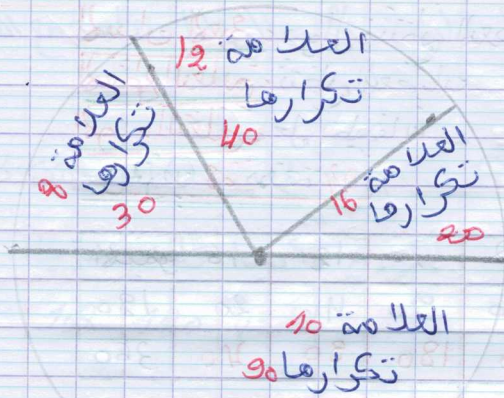 العلامة 12
تكرارها
40
العلامة 16
تكرارها
20
العلامة 8
تكرارها
30
العلامة 10
تكرارها 90